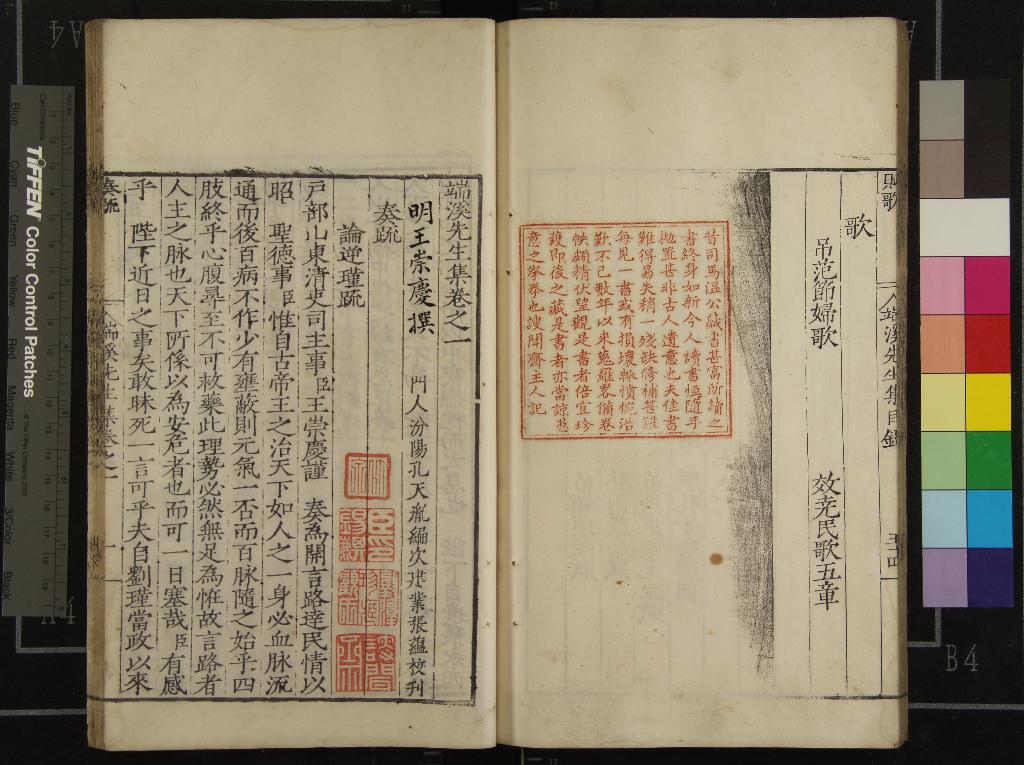 賦歌
端溪先生集目錄
五十四
歌
吊范節婦歌
效堯民歌五章
昔司馬溫公藏書甚富所讀之
書終身如新今人讀書恒隨手
抛置甚非古人遺意也夫佳書
難得易失稍一殘缺修補甚難
每見一書或有損壞輒憤惋浩
歎不已數年以來蒐羅畧備卷
帙頗精伏望觀是書者倍宜珍
護即後之藏是書者亦當諒愚
意之拳拳也謏聞齋主人記
端溪先生集卷之一
明王崇慶撰
門人汾陽孔天胤編次建業張蘊校刊
奏疏
論逆瑾疏
戶部山東清吏司主事臣王崇慶謹 奏為開言路達民情以
昭 聖德事臣惟自古帝王之治天下如人之一身必血脉流
通而後百病不作少有壅蔽則元氣一否而百脉隨之始乎四
肢終乎心腹尋至不可救藥此理勢必然無足為恠故言路者
人主之脉也天下所係以為安危者也而可一日塞哉臣有感
乎 陛下近日之事矣敢昧死一言可乎夫自劉瑾當政以來
奏疏
端溪先生集卷之一
一
TIFFEN Color Control Patches
Centimetres
Inches
Blue
Cyan
Green
Yellow
Red
Magenta
White
3/Color
Black
A4
A4
B4